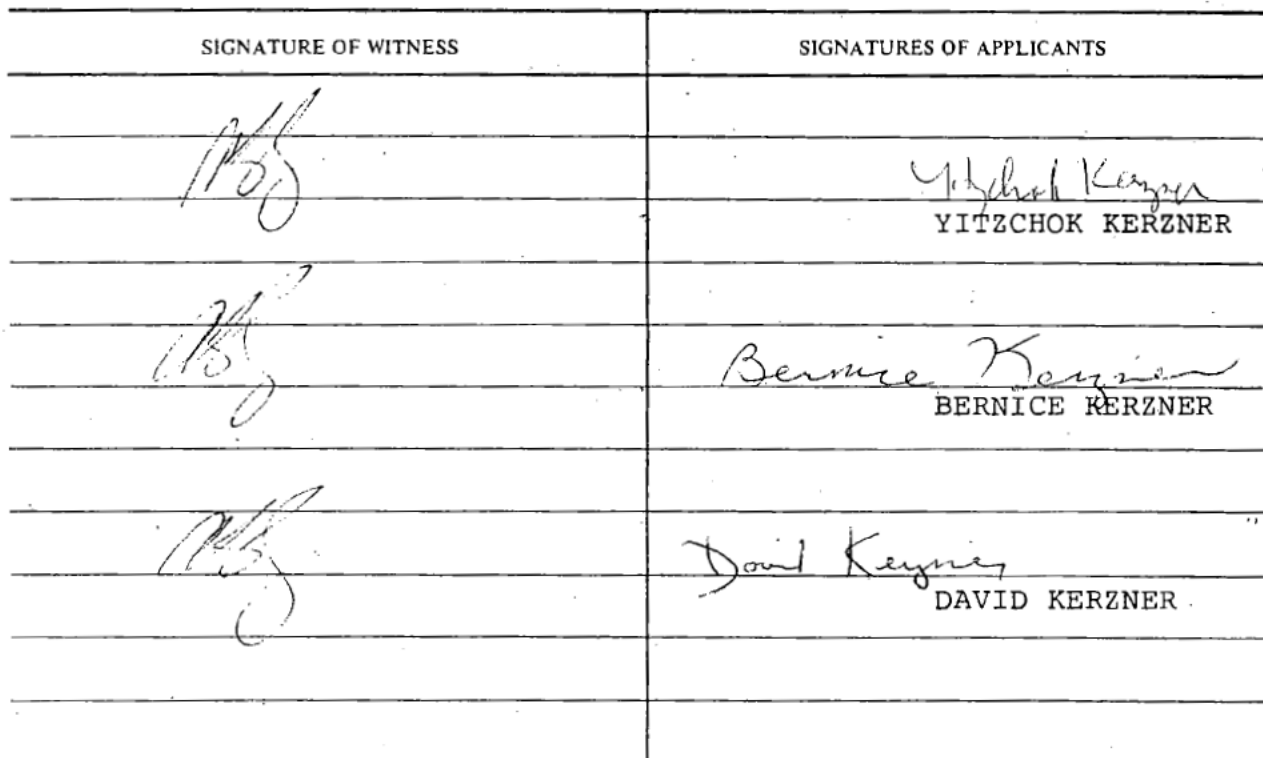 SIGNATURE OF WITNESS
SIGNATURES OF APPLICANTS
Yitzchok Kerzner
YITZCHOK KERZNER
Bernice Kerzner
BERNICE KERZNER
David Kerzner
DAVID KERZNER